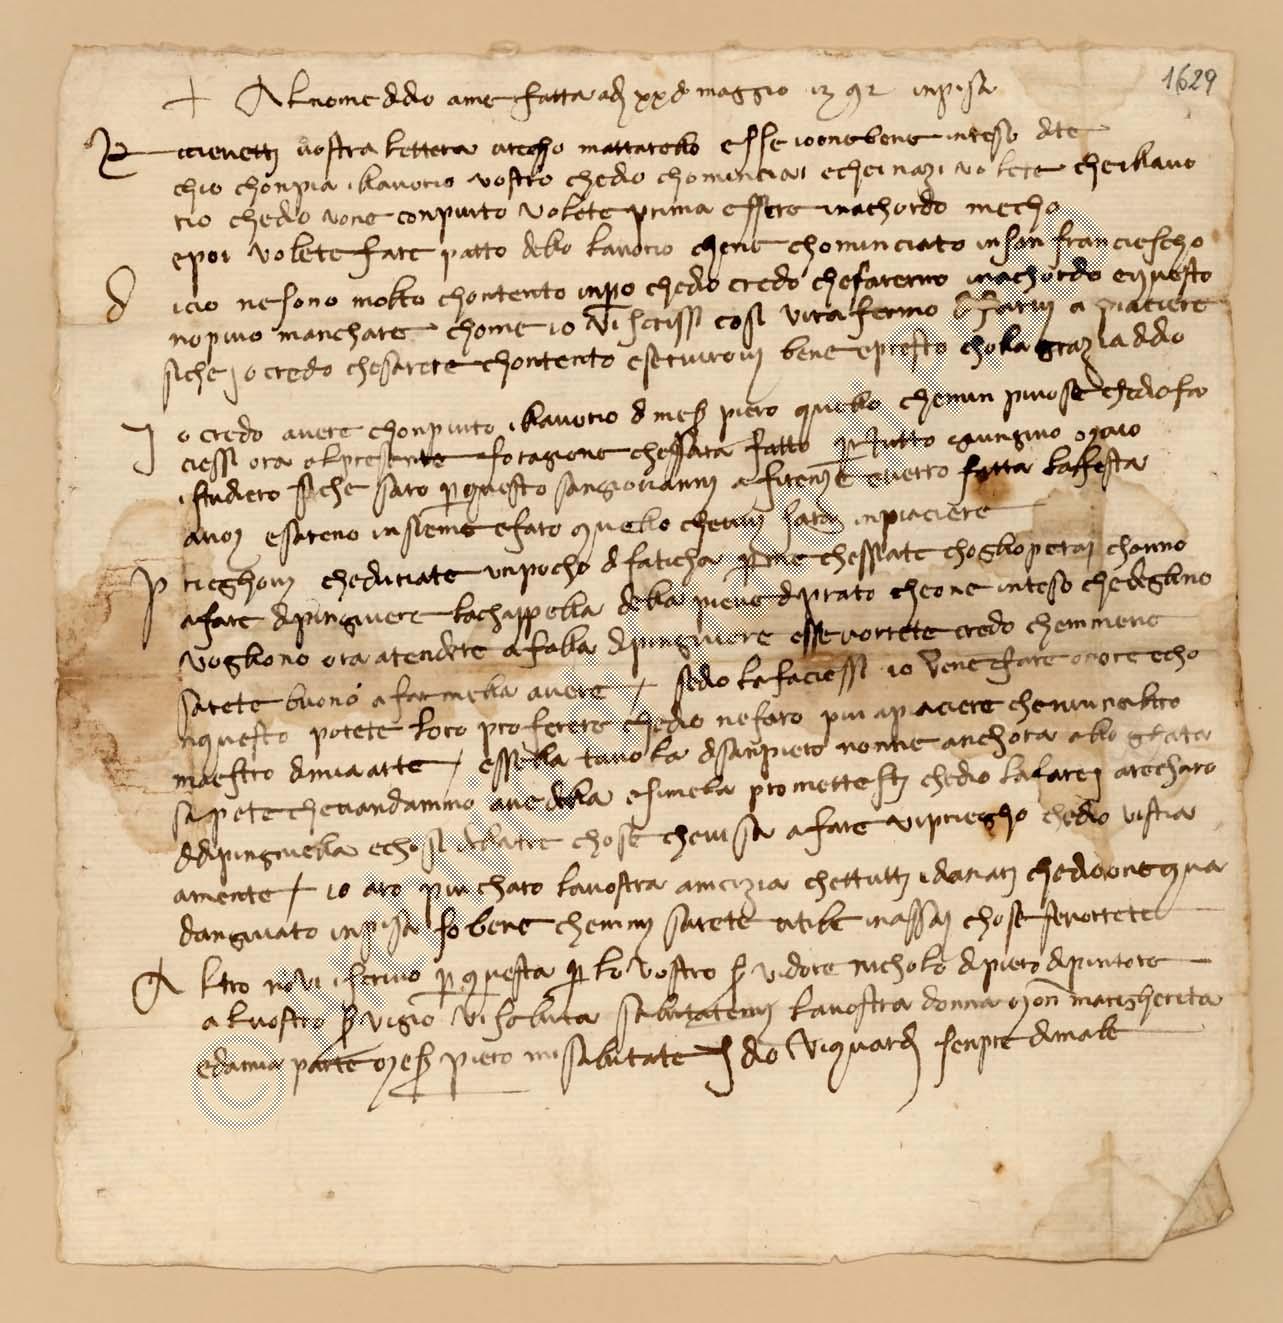 1629
+ Al nome ddio ame fatta adj xxd maggio 1392 inpisa
Ricievetti vostra lettera arecho mattarello esse ioone bene inteso dite
chio chonpia illavorio vostro chedio chominciai echeinazi volete cheillavo
rio chedio vone conpiuto volete prima essere inachordo mecho
epoi volete fare patto dello lavorio chene chominciato insan franciescho
dicio nesono molto chontento inpo chedio credo chefareno inachordo equesto
nopuo manchare chome io vi scrissi cosi vira fermo a piaciere
siche jo credo chesarete chontento eservirovj bene epresto cholla grazia ddio
Jo credo avere chonpiuto illavorio dmess piero quello chenun piuose chediofa
ciessi ora alpresente foragione chessara fatto p tutto gungno
istudiero siche saro p questo sangiovannj afirenze everro fatta lafesta
avoj esareno insieme efaro quello chevvi sara inpiaciere
Prieghovj cheduriate unpocho dfaticha p me chessiate choglioperaj channo
afare dpingniere lachappella della pieve dprato cheone inteso chedeglino
vogliono ora atendere afalla dpingniere essevorrete credo chemmene
sarete buono afarmella avere / sedio lafaciessi io vene fare onore echo
nquesto potete loro proferere chedio nefaro piu apiaciere cheniuno altro
maestro dmiaarte / essella tavola dsanpiero nonne anchora allo ghata
sapete cheandammo avedella esimela promettesti chedio lafarej arecharo
ddipingniella echosi dellatre chose chevisa afare vipriegho chedio vistia
amente / io aro piu charo lavostra amicizia chettuttj idanarj chedioonequa
dangniato inpisa so bene chemmj sarete utile inassaj chose sevorrete
Altro novi iscrivo p questa p lo vostro s vidore nicholo dpiero dpintore
alvostro s vigio vi saluta salutatemj lavostra donna monna marigherita
edamia parte mess piero mi salutate J dio viguardj senpre dimale